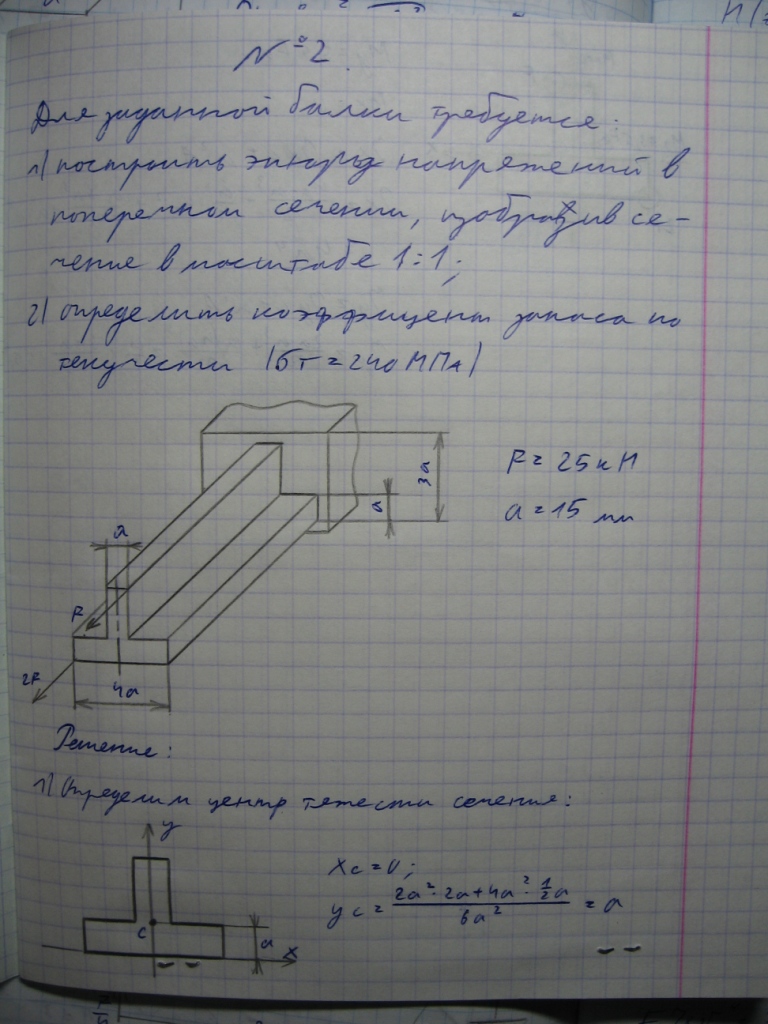 №2.
Для заданной балки требуется:
1) построить эпюры напряжений в
поперечном сечении, изобразив се-
чение в масштабе 1:1;
2) определить коэффициент запаса по
текучести (σт = 240 МПа)
3a
a
F = 25 кН
a = 15 мм
a
F
2F
4a
Решение:
1) Определим центр тяжести сечения:
y
xc = 0;
yc = (2a²·2a + 4a²·½a) / 6a² = a
c
a
x